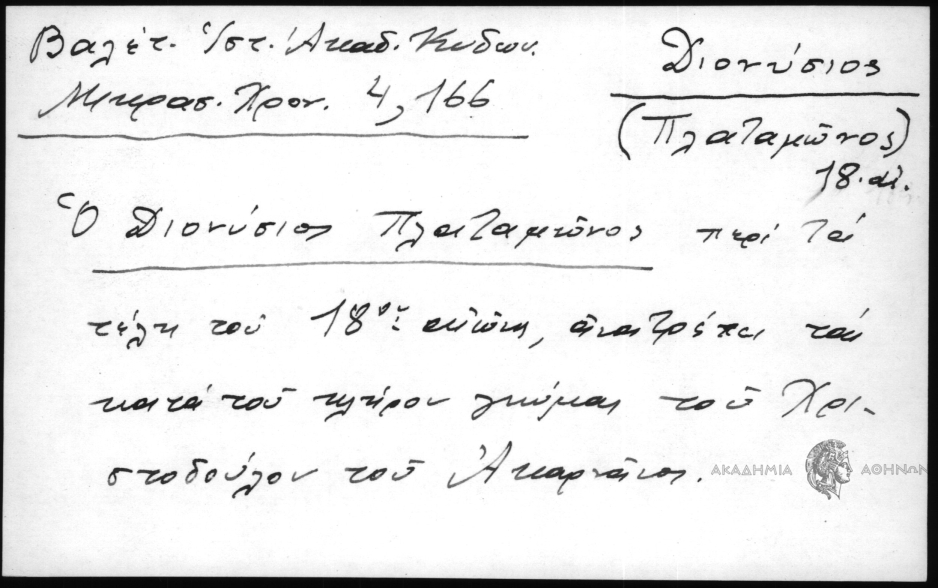 Βαλέτ. Ἱστ. Ἀκαδ. Κυδων.
Μικρασ. Χρον. 4, 166
Διονύσιος
(Πλαταμῶνος)
18. αἰ.
Ὁ Διονύσιος Πλαταμῶνος περὶ τὰ
τέλη τοῦ 18ου αἰῶνος, ἀνατρέπει τὰς
κατὰ τοῦ κλήρου γνώμας τοῦ Χρι-
στοδούλου τοῦ Ἀκαρνᾶνος.
ΑΚΑΔΗΜΙΑ ΑΘΗΝΩΝ